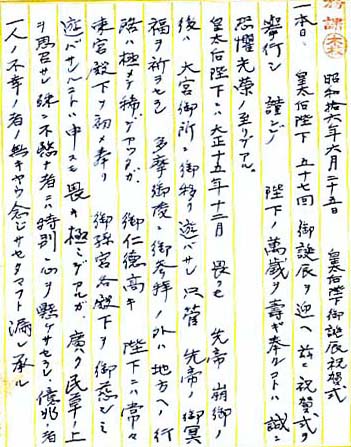 昭和十六年六月二十五日
皇太后陛下御誕辰祝賀式
一、本日、皇太后陛下 五十七回 御誕辰ヲ迎ヘ茲ニ祝賀式ヲ
挙行シ 謹ンデ 陛下ノ萬歳ヲ壽ギ奉ルコトハ 誠ニ
恐懼光栄ノ至リデアル。
皇太后陛下ニハ大正十五年十二月 畏クモ 先帝 崩御ノ
後ハ 大宮御所ニ御移リ遊バサレ 只管 先帝ノ御冥
福ヲ祈ラセラレ 多摩御陵ニ御参拝ノ外ハ地方ヘノ行
啓ハ極メテ稀デアツタガ、御仁徳高キ 陛下ニハ常々
東宮殿下ヲ初メ奉リ 御孫宮各殿下ヲ御慈シミ
遊バサルルコトハ申スモ畏キ極ミデアルガ 廣ク民草ノ上
ヲ思召サレ殊ニ不愍ナ者ニハ特別ノ心ヲ懸ケサセラレ、億兆ノ者
一人ノ不幸ノ者ノ無キヤウ念ジサセタマフト漏レ承ル